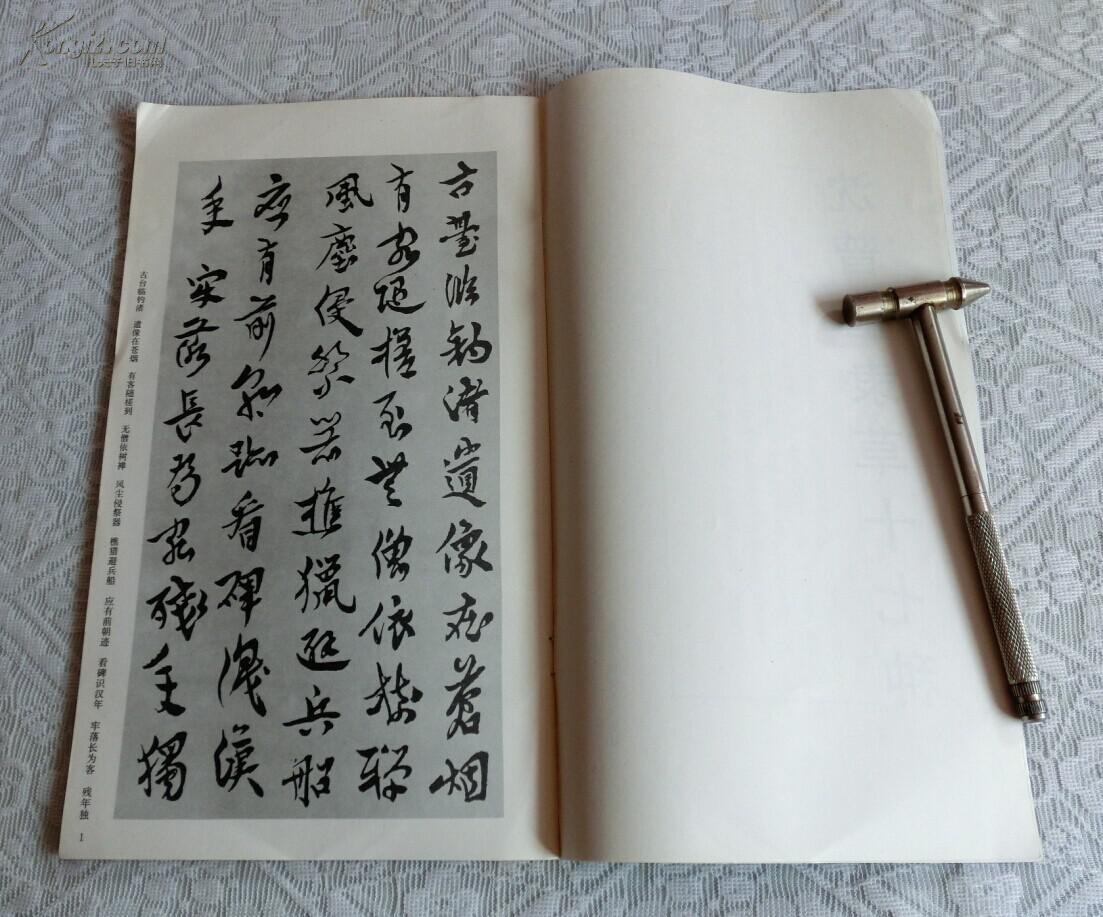 古臺臨釣渚遺像在蒼烟
有客随槎到無僧依樹禪
風塵侵祭器樵獵避兵船
應有前朝跡看碑識漢
年牢落長為客殘年獨
古台临钓渚 遗像在苍烟 有客随槎到 无僧依树禅 风尘侵祭器 樵猎避兵船 应有前朝迹 看碑识汉年 牢落长为客 残年独
1
Kongfz.com
孔夫子旧书网